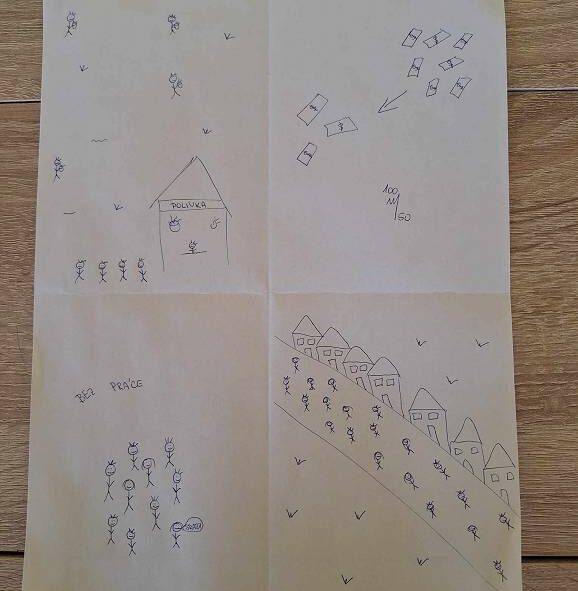 POLIVKA
100
M
50
BEZ PRÁCE